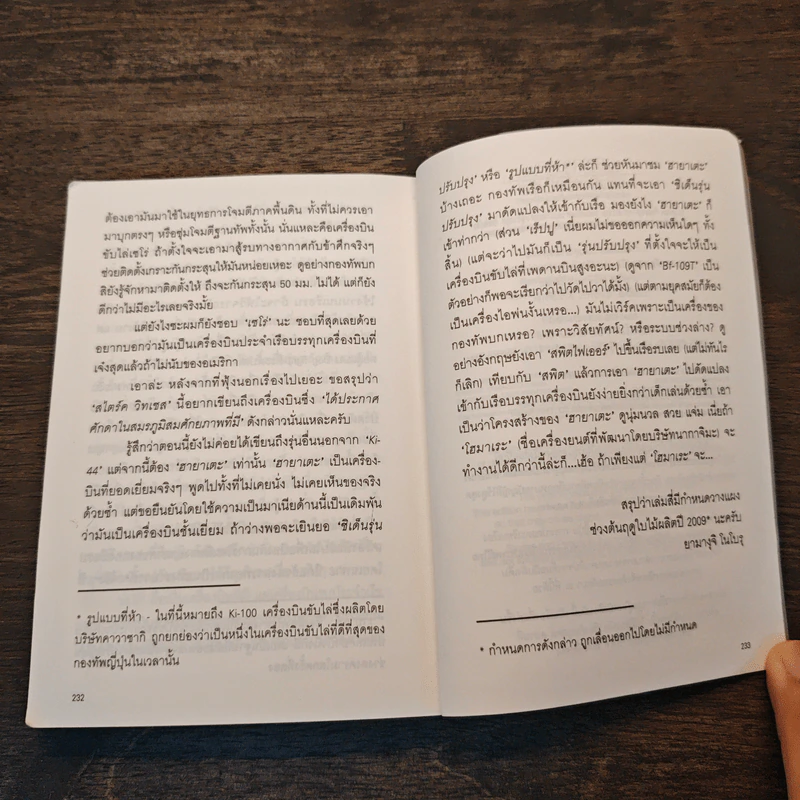 ต้องเอามันมาใช้ในยุทธการโจมตีภาคพื้นดิน ทั้งที่ไม่ควรเอา
มาบุกตรงๆ หรือซุ่มโจมตีฐานทัพทั้งนั้น นั่นแหละคือเครื่องบิน
ขับไล่เซโร่ ถ้าตั้งใจจะเอามาสู้รบทางอากาศกับข้าศึกจริงๆ
ช่วยติดตั้งเกราะกันกระสุนให้มันหน่อยเหอะ ดูอย่างกองทัพบก
สิยังรู้จักหามาติดตั้งให้ ถึงจะกันกระสุน 50 มม. ไม่ได้ แต่ก็ยัง
ดีกว่าไม่มีอะไรเลยจริงมั้ย
แต่ยังไงซะผมก็ยังชอบ 'เซโร่' นะ ชอบที่สุดเลยด้วย
อยากบอกว่ามันเป็นเครื่องบินประจำเรือบรรทุกเครื่องบินที่
เจ๋งสุดแล้วถ้าไม่นับของอเมริกา
เอาล่ะ หลังจากที่ฟุ้งนอกเรื่องไปเยอะ ขอสรุปว่า
'สไตร์ค วิทเชส' นี้อยากเขียนถึงเครื่องบินซึ่ง 'ได้ประกาศ
ศักดาในสมรภูมิสมศักยภาพที่มี' ดังกล่าวนั่นแหละครับ
รู้สึกว่าตอนนี้ยังไม่ค่อยได้เขียนถึงรุ่นอื่นนอกจาก 'Ki-
44' แต่จากนี้ต้อง 'ฮายาเตะ' เท่านั้น 'ฮายาเตะ' เป็นเครื่อง-
บินที่ยอดเยี่ยมจริงๆ พูดไปทั้งที่ไม่เคยนั่ง ไม่เคยเห็นของจริง
ด้วยซ้ำ แต่ขอยืนยันโดยใช้ความเป็นมาเนียด้านนี้เป็นเดิมพัน
ว่ามันเป็นเครื่องบินชั้นเยี่ยม ถ้าว่างพอจะเยินยอ 'ชิเด็นรุ่น
* รูปแบบที่ห้า - ในที่นี้หมายถึง Ki-100 เครื่องบินขับไล่ซึ่งผลิตโดย
บริษัทคาวาซากิ ถูกยกย่องว่าเป็นหนึ่งในเครื่องบินขับไล่ที่ดีที่สุดของ
กองทัพญี่ปุ่นในเวลานั้น
232
ปรับปรุง' หรือ 'รูปแบบที่ห้า*' ล่ะก็ ช่วยหันมาชม 'ฮายาเตะ'
บ้างเถอะ กองทัพเรือก็เหมือนกัน แทนที่จะเอา 'ชิเด็นรุ่น
ปรับปรุง' มาดัดแปลงให้เข้ากับเรือ มองยังไง 'ฮายาเตะ' ก็
เข้าท่ากว่า (ส่วน 'เร็ปปู' เนี่ยผมไม่ขอออกความเห็นใดๆ ทั้ง
สิ้น) (แต่จะว่าไปมันก็เป็น 'รุ่นปรับปรุง' ที่ตั้งใจจะให้เป็น
เครื่องบินขับไล่ที่เพดานบินสูงอะนะ) (ดูจาก 'Bf-109T' เป็น
ตัวอย่างก็พอจะเรียกว่าไปวัดไปวาได้มั้ง) (แต่ตามยุคสมัยก็ต้อง
เป็นเครื่องไอพ่นงั้นเหรอ...) มันไม่เวิร์คเพราะเป็นเครื่องของ
กองทัพบกเหรอ? เพราะวิสัยทัศน์? หรือระบบช่วงล่าง? ดู
อย่างอังกฤษยังเอา 'สพิตไฟเออร์' ไปขึ้นเรือรบเลย (แต่ไม่ทันไร
ก็เลิก) เทียบกับ 'สพิต' แล้วการเอา 'ฮายาเตะ' ไปดัดแปลง
เข้ากับเรือบรรทุกเครื่องบินยังง่ายยิ่งกว่าเด็กเล่นด้วยซ้ำ เอา
เป็นว่าโครงสร้างของ 'ฮายาเตะ' ดูนุ่มนวล สวย แจ่ม เนี่ยถ้า
'โฮมาเระ' (ชื่อเครื่องยนต์ที่พัฒนาโดยบริษัทนากาจิมะ) จะ
ทำงานได้ดีกว่านี้ล่ะก็...เฮ้อ ถ้าเพียงแต่ 'โฮมาเระ' จะ...
สรุปว่าเล่มสี่มีกำหนดวางแผง
ช่วงต้นฤดูใบไม้ผลิตปี 2009* นะครับ
ยามางุจิ โนโบรุ
* กำหนดการดังกล่าว ถูกเลื่อนออกไปโดยไม่มีกำหนด
233